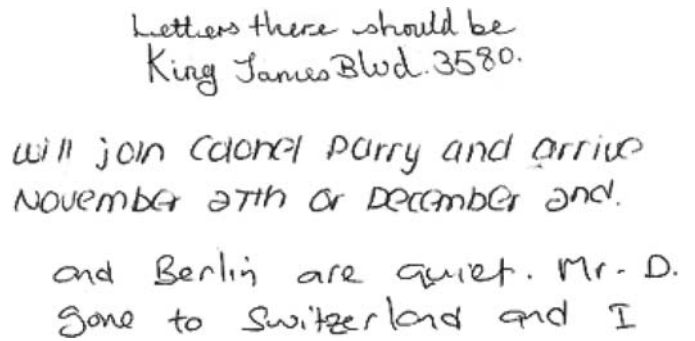 Letters there should be
King James Blvd. 3580.
will join Colonel Parry and arrive
November 27th or December 2nd.
and Berlin are quiet. Mr. D.
gone to Switzerland and I